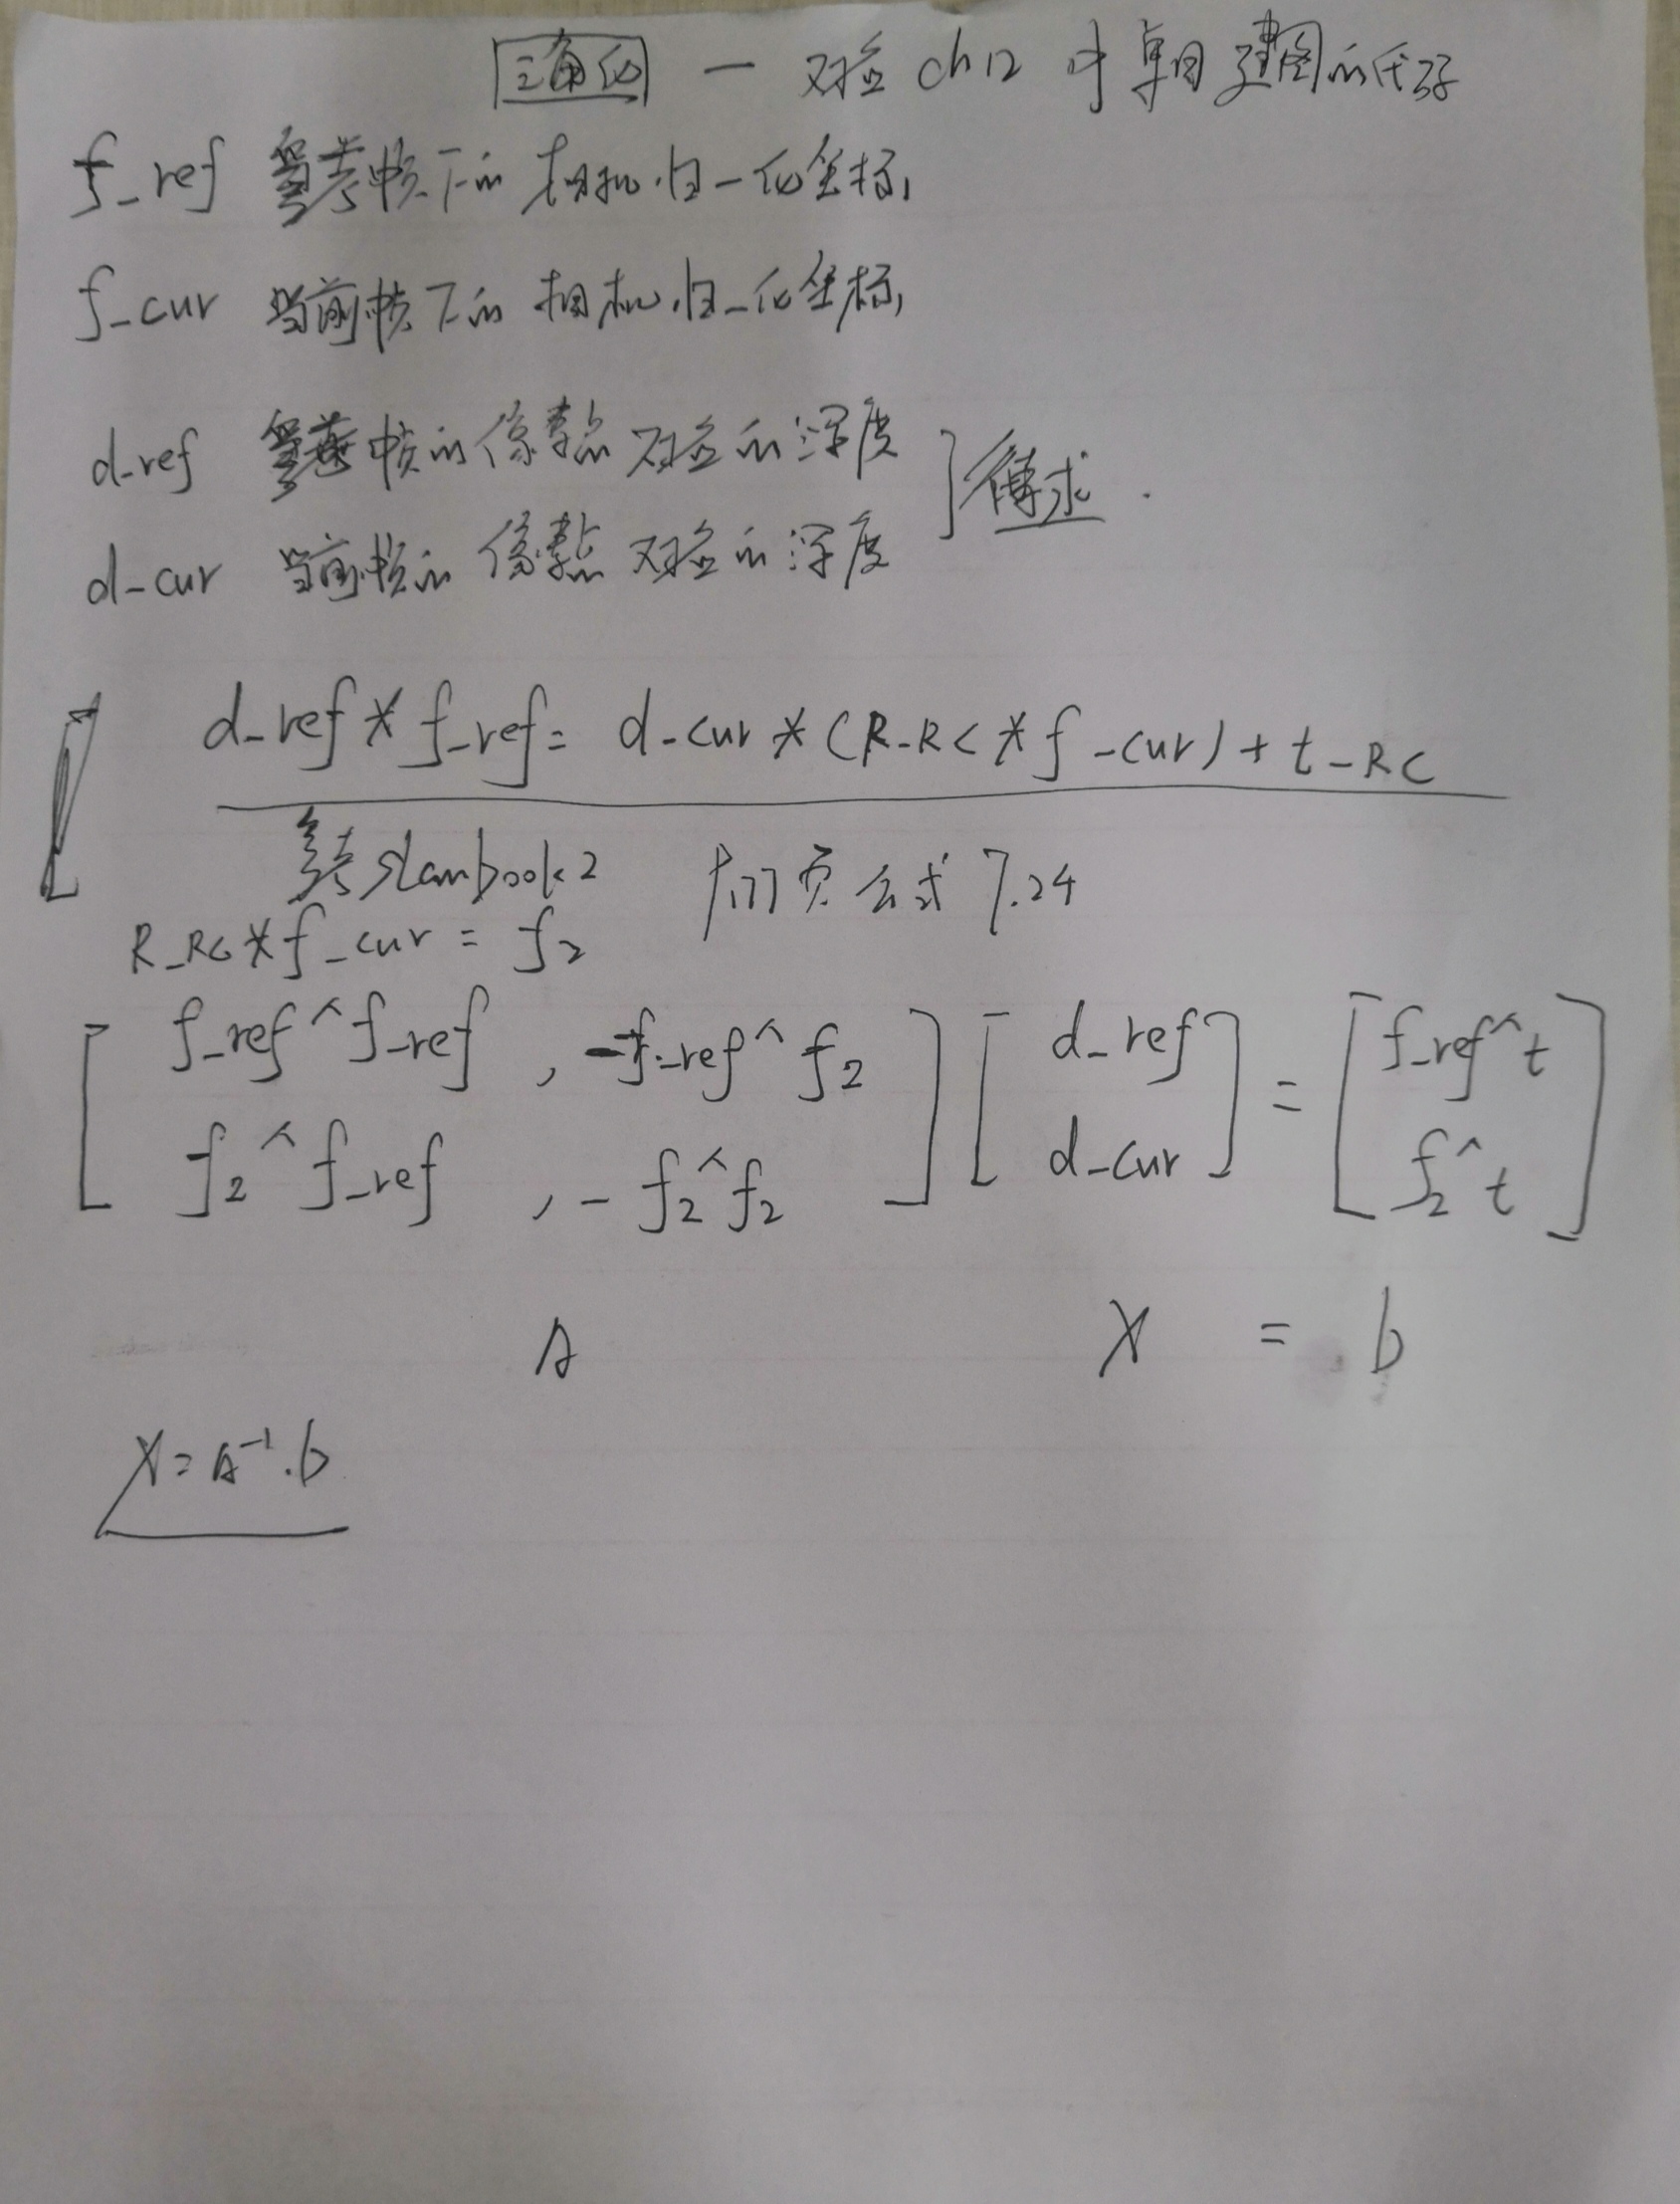 三角化 — 对应 ch12 中单目建图的代码
f_ref 参考帧下的 相机归一化坐标,
f_cur 当前帧下的 相机归一化坐标,
d_ref 参考帧的像素点对应的深度
d_cur 当前帧的像素点对应的深度 } 待求.
d_ref * f_ref = d_cur * (R_RC * f_cur) + t_RC
参考slambook2 P177页公式 7.24
R_RC * f_cur = f₂
[ f_ref^f_ref , -f_ref^f₂ ] [ d_ref ] = [ f_ref^t ]
[ f₂^f_ref , - f₂^f₂ ] [ d_cur ] [ f₂^t ]
A X = b
X = A⁻¹.b